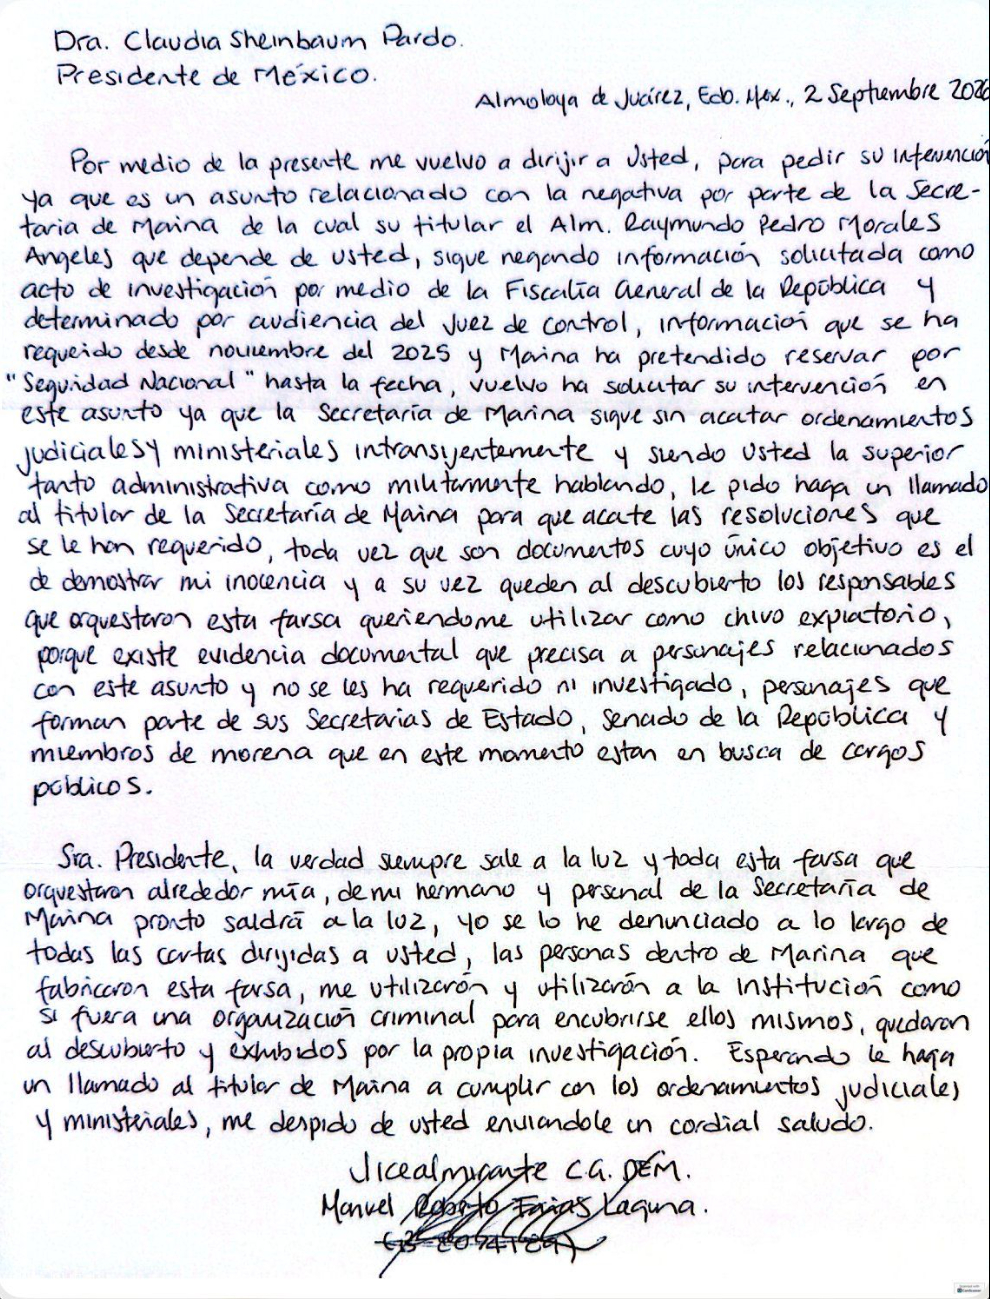 Dra. Claudia Sheinbaum Pardo.
Presidente de México.
Almoloya de Juárez, Edo. Mex., 2 Septiembre 2026
Por medio de la presente me vuelvo a dirijir a Usted, para pedir su intervención
ya que es un asunto relacionado con la negativa por parte de la Secre-
taria de Marina de la cual su titular el Alm. Raymundo Pedro Morales
Angeles que depende de usted, sigue negando información solicitada como
acto de investigación por medio de la Fiscalía General de la República y
determinado por audiencia del Juez de control, información que se ha
requerido desde noviembre del 2025 y Marina ha pretendido reservar por
"Seguridad Nacional" hasta la fecha, vuelvo ha solicitar su intervención en
este asunto ya que la Secretaría de Marina sigue sin acatar ordenamientos
judiciales y ministeriales intransijentemente y siendo Usted la superior
tanto administrativa como militarmente hablando, le pido haga un llamado
al titular de la Secretaría de Marina para que acate las resoluciones que
se le han requerido, toda vez que son documentos cuyo único objetivo es el
de demostrar mi inocencia y a su vez queden al descubierto los responsables
que orquestaron esta farsa queriendome utilizar como chivo expiatorio,
porque existe evidencia documental que precisa a personajes relacionados
con este asunto y no se les ha requerido ni investigado, personajes que
forman parte de sus Secretarias de Estado, Senado de la República y
miembros de morena que en este momento estan en busca de cargos
públicos.
Sra. Presidente, la verdad siempre sale a la luz y toda esta farsa que
orquestaron alrededor mía, de mi hermano y personal de la Secretaría de
Marina pronto saldrá a la luz, yo se lo he denunciado a lo largo de
todas las cartas dirijidas a usted, las personas dentro de Marina que
fabricaron esta farsa, me utilizarón y utilizarón a la institución como
si fuera una organización criminal para encubrirse ellos mismos, quedaran
al descubierto y exhibidos por la propia investigación. Esperando le haga
un llamado al titular de Marina a cumplir con los ordenamientos judiciales
y ministeriales, me despido de usted enviandole un cordial saludo.
Vicealmirante C.G. DEM.
Manuel Roberto Farias Laguna.